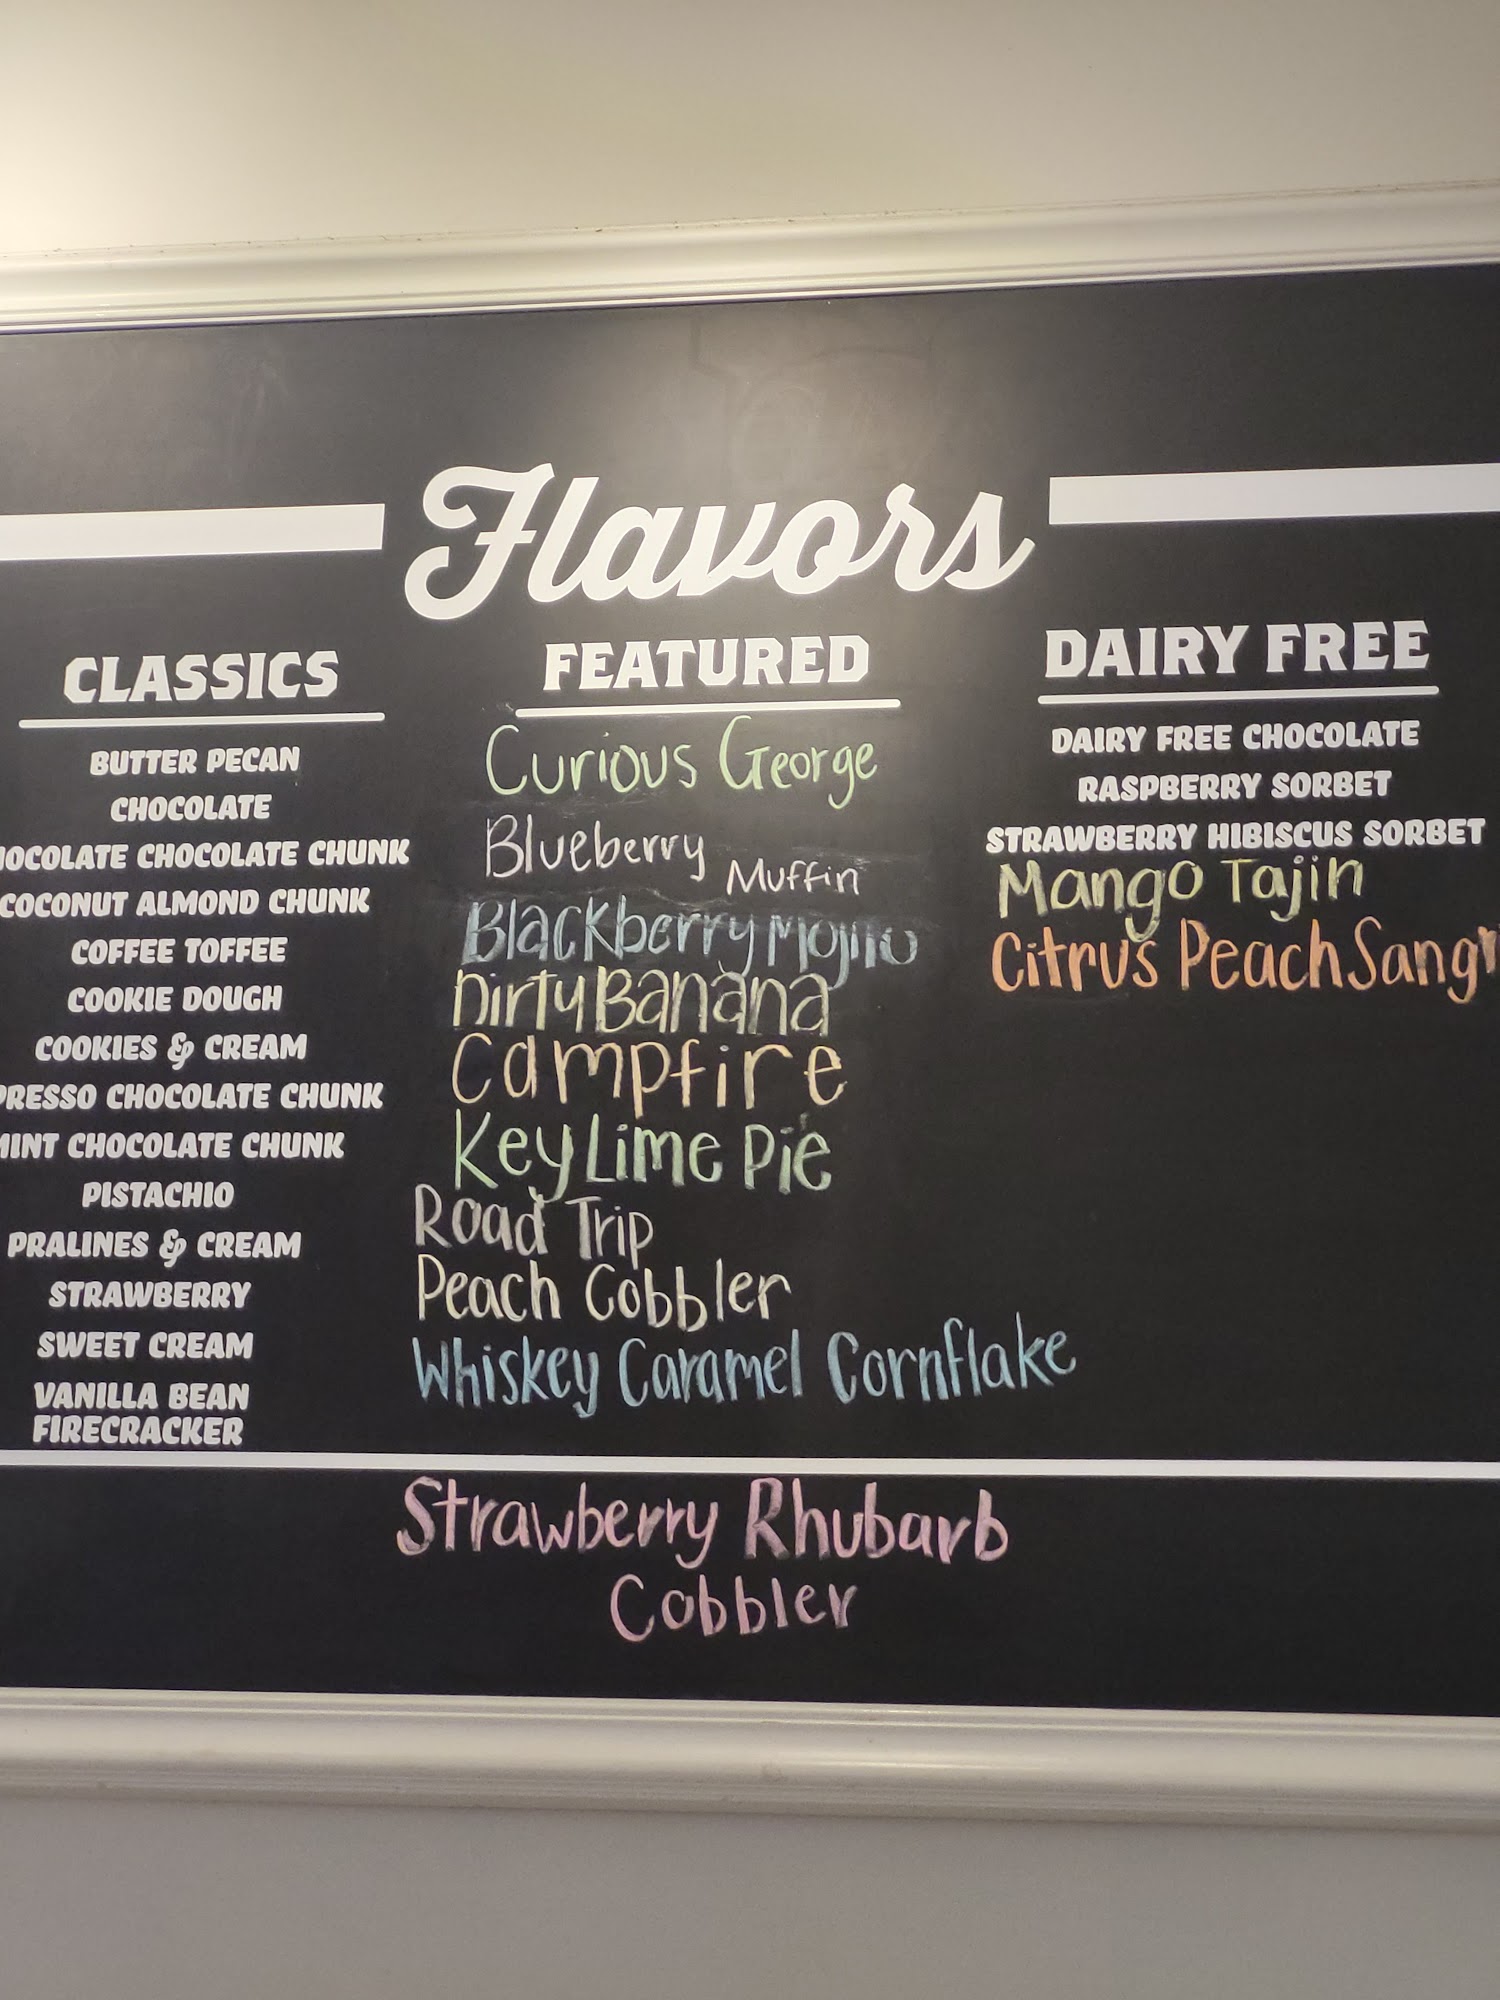 Flavors
CLASSICS
BUTTER PECAN
CHOCOLATE
CHOCOLATE CHUNK
COCONUT ALMOND CHUNK
COFFEE TOFFEE
COOKIE DOUGH
COOKIES & CREAM
CHOCOLATE CHUNK
CHOCOLATE CHUNK
PISTACHIO
PRALINES & CREAM
STRAWBERRY
SWEET CREAM
VANILLA BEAN
FIRECRACKER
FEATURED
Curious George
Blueberry Muffin
Blackberry Mojito
Dirty Banana
Campfire
Key Lime Pie
Road Trip
Peach Cobbler
Whiskey Caramel Cornflake
DAIRY FREE
DAIRY FREE CHOCOLATE
RASPBERRY SORBET
STRAWBERRY HIBISCUS SORBET
Mango Tajin
Citrus Peach
Strawberry Rhubarb
Cobbler